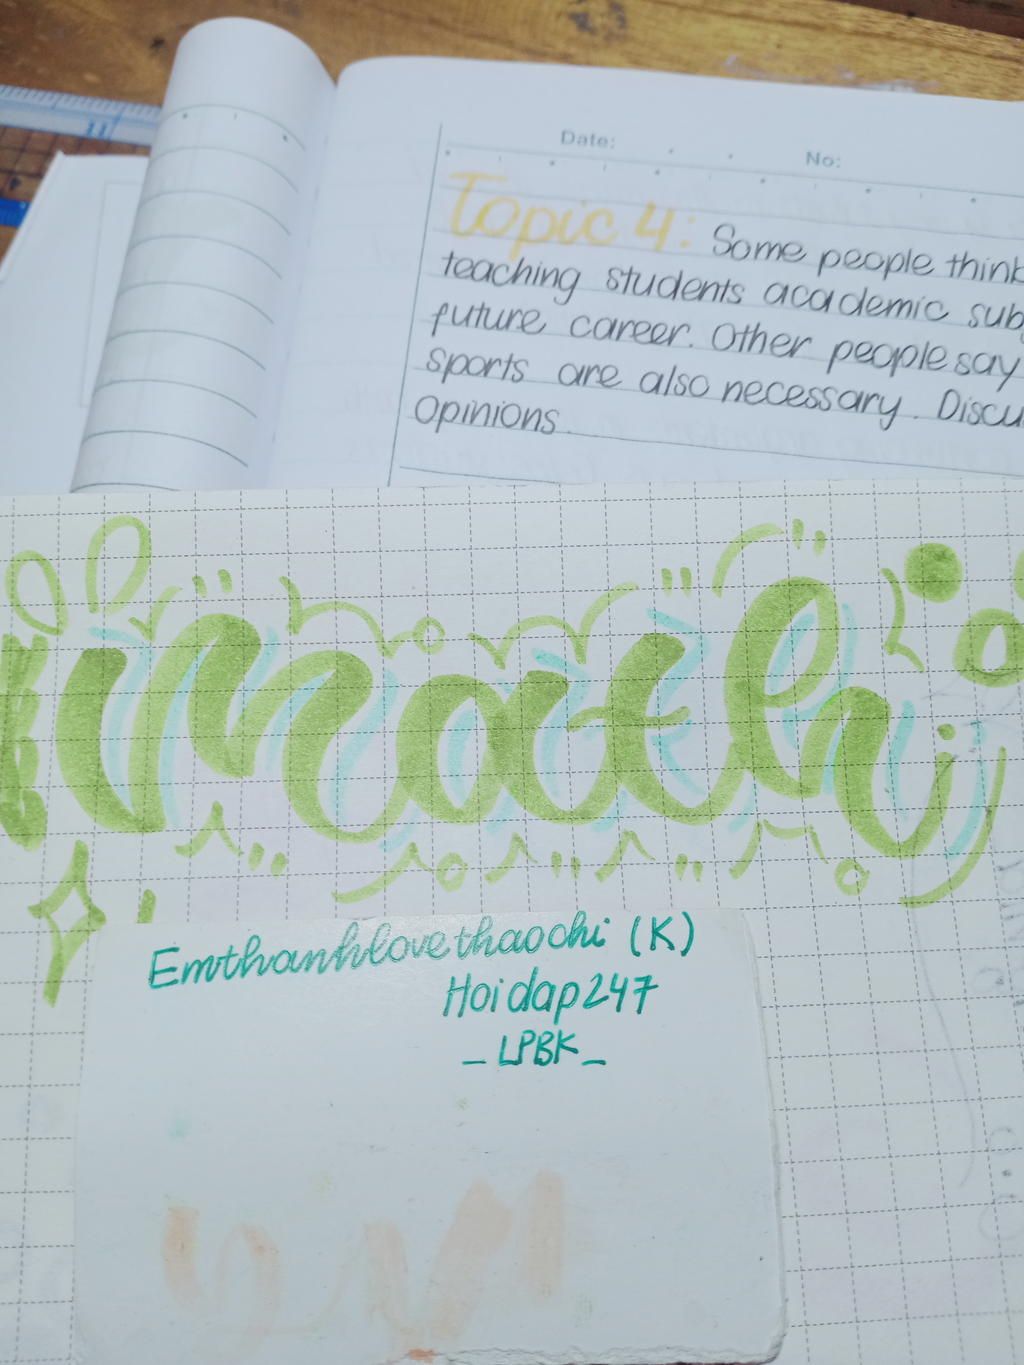 11
Date: No:
Topic 4: Some people think
teaching students academic sub
future career. Other people say
sports are also necessary. Discu
opinions.
math
Emthanhlovethaochi (K)
Hoidap247
_ LPBK _